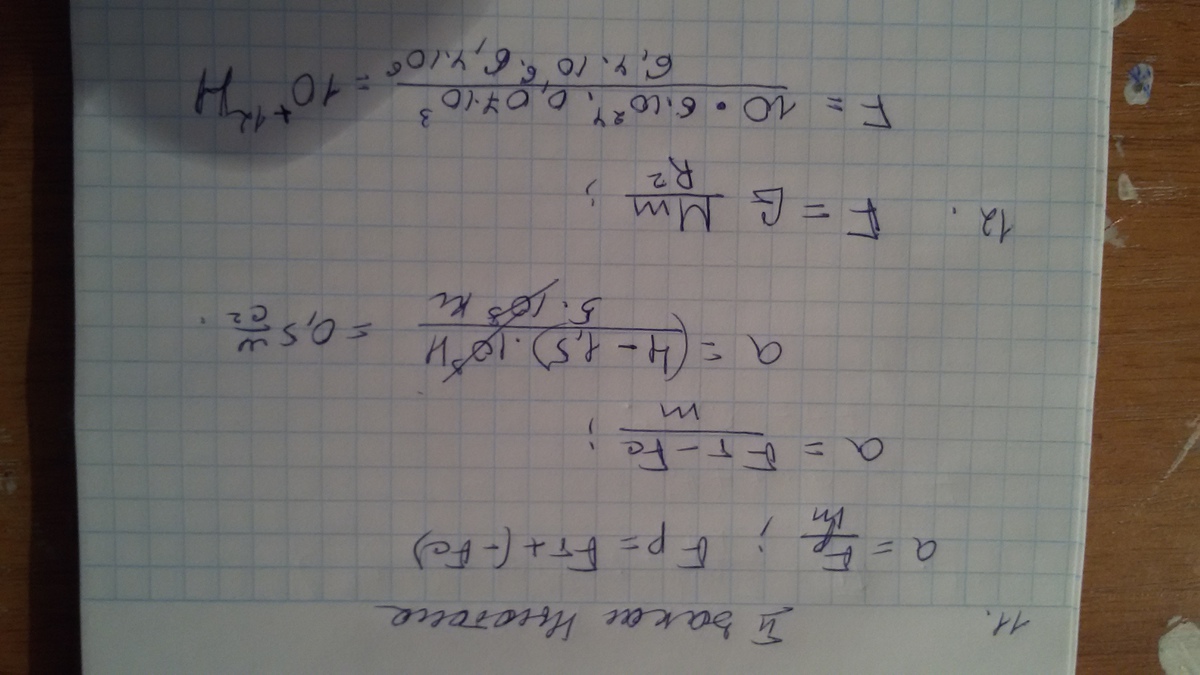 11. II закон Ньютона
a = Fp/m ; Fp = Fт + (-Fc)
a = (Fт - Fc)/m ;
a = (4 - 1,5) · 10⁵ Н / 5 · 10⁵ кг = 0,5 м/с² .
12. F = G Mm/R² ;
F = 10 · 6·10²⁴ · 0,07·10³ / 6,4·10⁶ · 6,4·10⁶ = 10⁺¹² Н